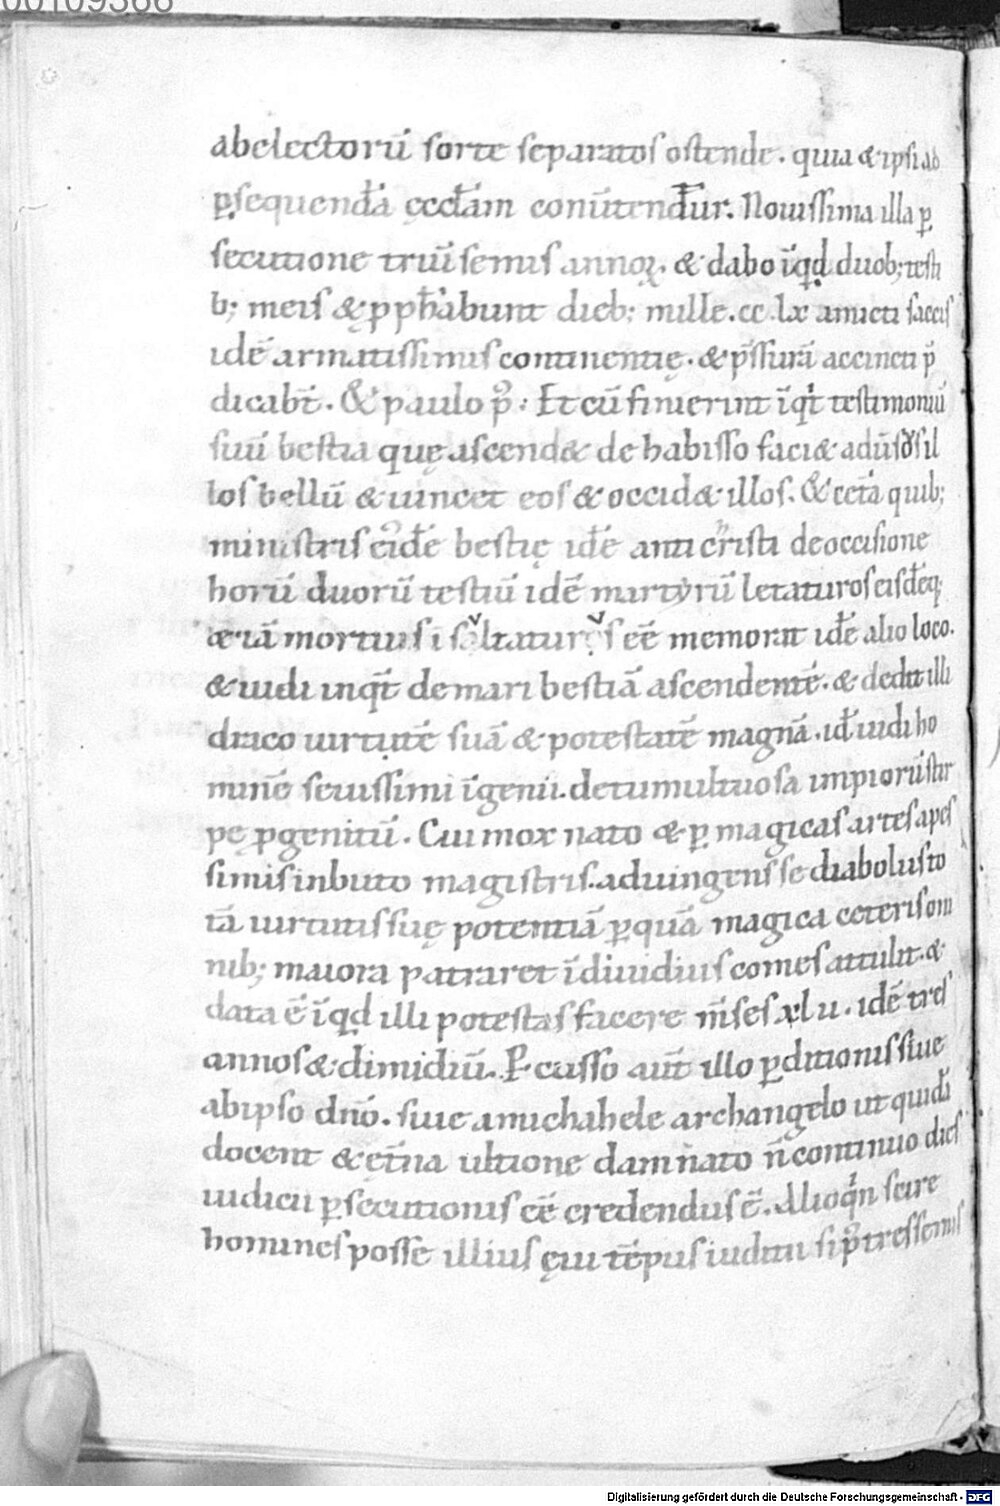 00109366
abelectorū sorte separatos ostende. quia & ipsi ad
ꝑsequendā ęccłam conūtendur. Nouissima illa ꝑ
secutione triū semis annoꝝ. & dabo īqd duob; testi
b; meis & ꝓphabunt dieb; mille.cc.lx amicti saccis
idē armatissimis continentię. & p̄ssurā accincti p̄
dicabt̄. & paulo p᷒: Et cū finierint īqt testimoniū
suū bestia quę ascend& de habisso faci& aduersus il
los bellū & uincet eos & occid& illos. & cet̄a quib;
ministris eidē bestię idē anticristi deoccisione
horū duorū testiū idē martyrū letaturos eisdēq;
iā mortuis isultaturos eē memorat idē alio loco.
& uidi inqt̄ de mari bestiā ascendentē. & dedit illi
draco uirtutē suā & potestatē magnā. id̄ uidi ho
minē seuissimi īgenii. detumultuosa impiorū stir
pe ꝓgenitū. Cui mox nato & ꝑ magicas artes apes
simis inbuto magistris. adiungens se diabolus to
tā uirtutis suę potentiā ꝑquā magica ceteris om
nib; maiora patraret īdiuidius comes attulit. &
data ē īqd illi potestas facere m̄ses xlu. idē tres
annos & dimidiū. Pcusso aut̄ illo ꝑditionis siue
abipso dn̄o. siue amichahele archangelo ut quidā
docent & ęt̄na ultione damnato n̄ continuo dies
iudicii ꝑsecutionis eē credendus ē. Alioqn̄ scire
homines posse illius ęui tēpus iudicii si p᷒ tres semis
Digitalisierung gefördert durch die Deutsche Forschungsgemeinschaft - DFG